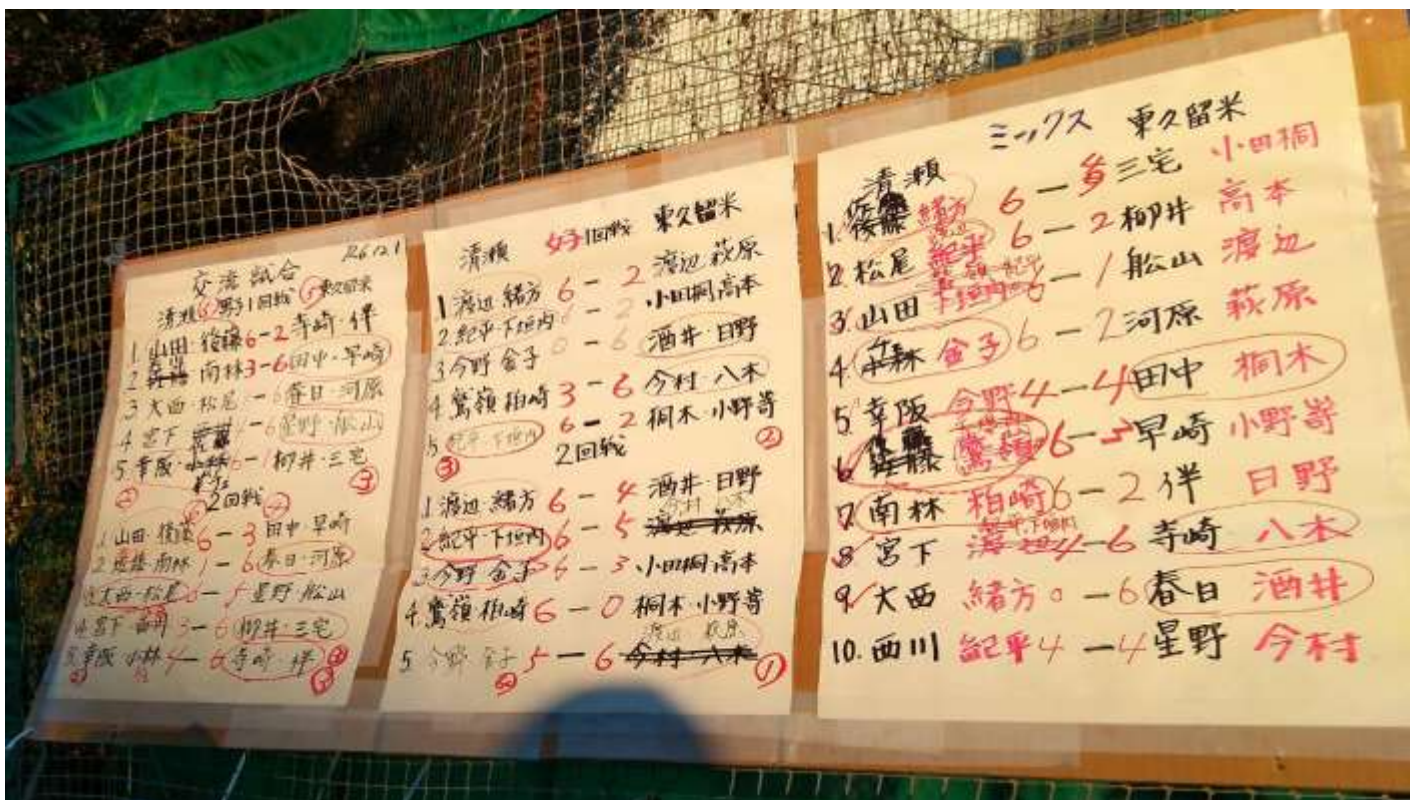 交流試合
清瀬 男子1回戦 東久留米
1. 山田・後藤 6-2 寺崎・伴
2 南林 3-6 田中・早崎
3 大西・松尾 -6 春日・河原
4 宮下 -6 星野・船山
5 幸阪・小林 -1 柳井・三宅
③
2回戦
1 山田・後藤 6-3 田中 早崎
2 後藤・南林 1-6 春日・河原
3 大西・松尾 -5 星野 船山
4 宮下 3-6 柳井・三宅
5 幸阪 小林 4-6 寺崎 伴
清瀬 1回戦 東久留米
1 渡辺 緒方 6-2 渡辺 萩原
2 紀平・下垣内 6-2 小田桐 高本
3 今野 金子 0-6 酒井・日野
4 鷲嶺 柏崎 3-6 今村・八木
5 紀平・下垣内 6-2 桐木・小野嵜
③ 2回戦 ②
1 渡辺・緒方 6-4 酒井・日野
今村 八木
2 紀平・下垣内 6-5 渡辺 萩原
3 今野 金子 6-3 小田桐 高本
4 鷲嶺 柏崎 6-0 桐木・小野嵜
渡辺 萩原
5 今野 金子 5-6 今村・八木
①
ミックス 東久留米
清瀬
1. 後藤 緒方 6- 三宅 小田桐
2 松尾 紀平 6-2 柳井 高本
3 山田 下垣内 6-1 船山 渡辺
4. 金子 6-2 河原 萩原
5. 幸阪 今野 4-4 田中 桐木
6 後藤 鷲嶺 6-5 早崎 小野嵜
7 南林 柏崎 6-2 伴 日野
紀平・下垣内
8 宮下 渡辺 4-6 寺崎 八木
9 大西 緒方 0-6 春日 酒井
10. 西川 紀平 4-4 星野 今村